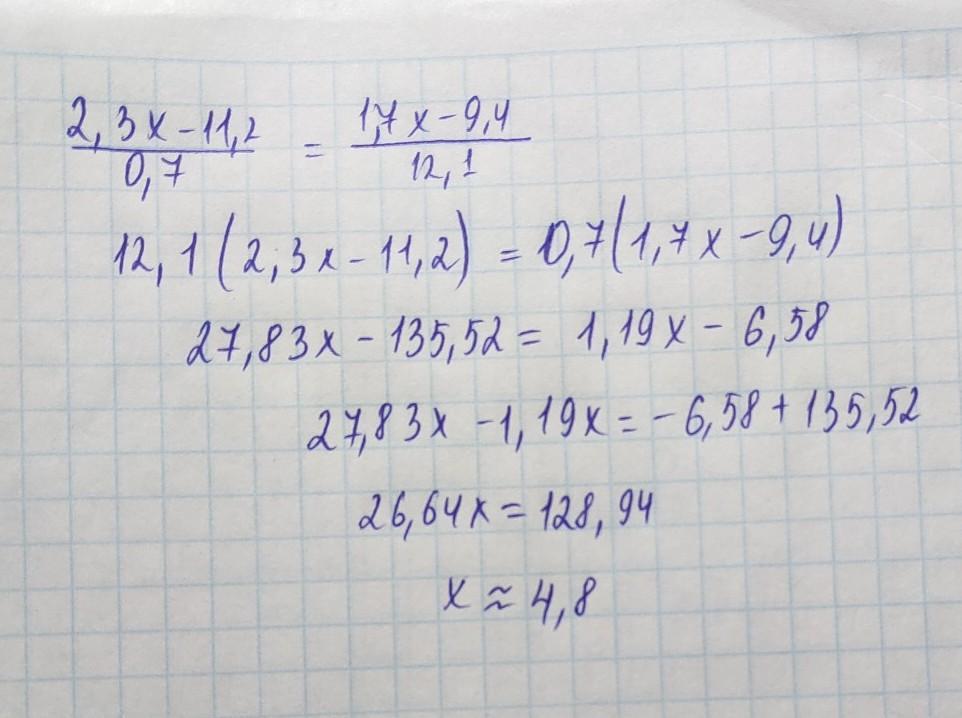 2,3x-11,2 / 0,7 = 1,7x-9,4 / 12,1
12,1(2,3x-11,2) = 0,7(1,7x-9,4)
27,83x - 135,52 = 1,19x - 6,58
27,83x - 1,19x = -6,58 + 135,52
26,64x = 128,94
x ≈ 4,8